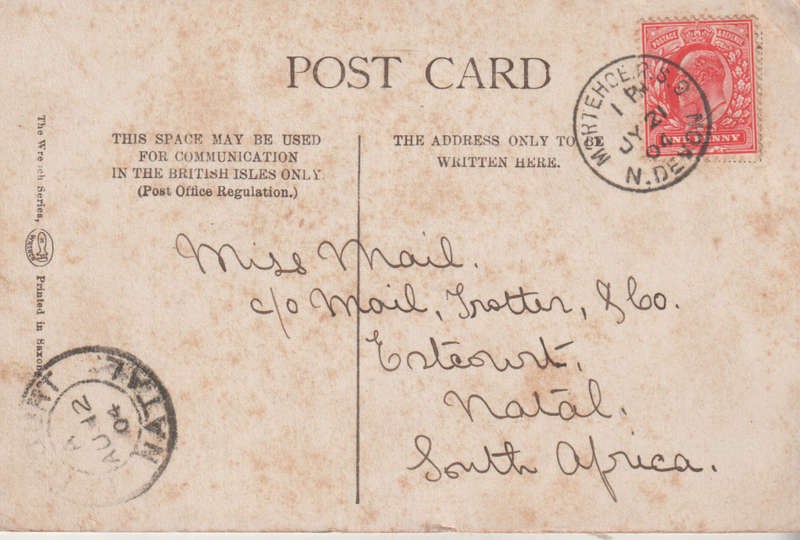 POST CARD
THIS SPACE MAY BE USED
FOR COMMUNICATION
IN THE BRITISH ISLES ONLY.
(Post Office Regulation.)
THE ADDRESS ONLY TO BE
WRITTEN HERE.
POSTAGE & REVENUE
ONE PENNY
MORTEHOE. R.S.O
1 PM
JY 21
04
N. DEVON
Miss Mail.
c/o Mail, Trotter, & Co.
Estcourt,
Natal.
South Africa.
The Wrench Series,
Printed in Saxony
NATAL
A
AU 12
04